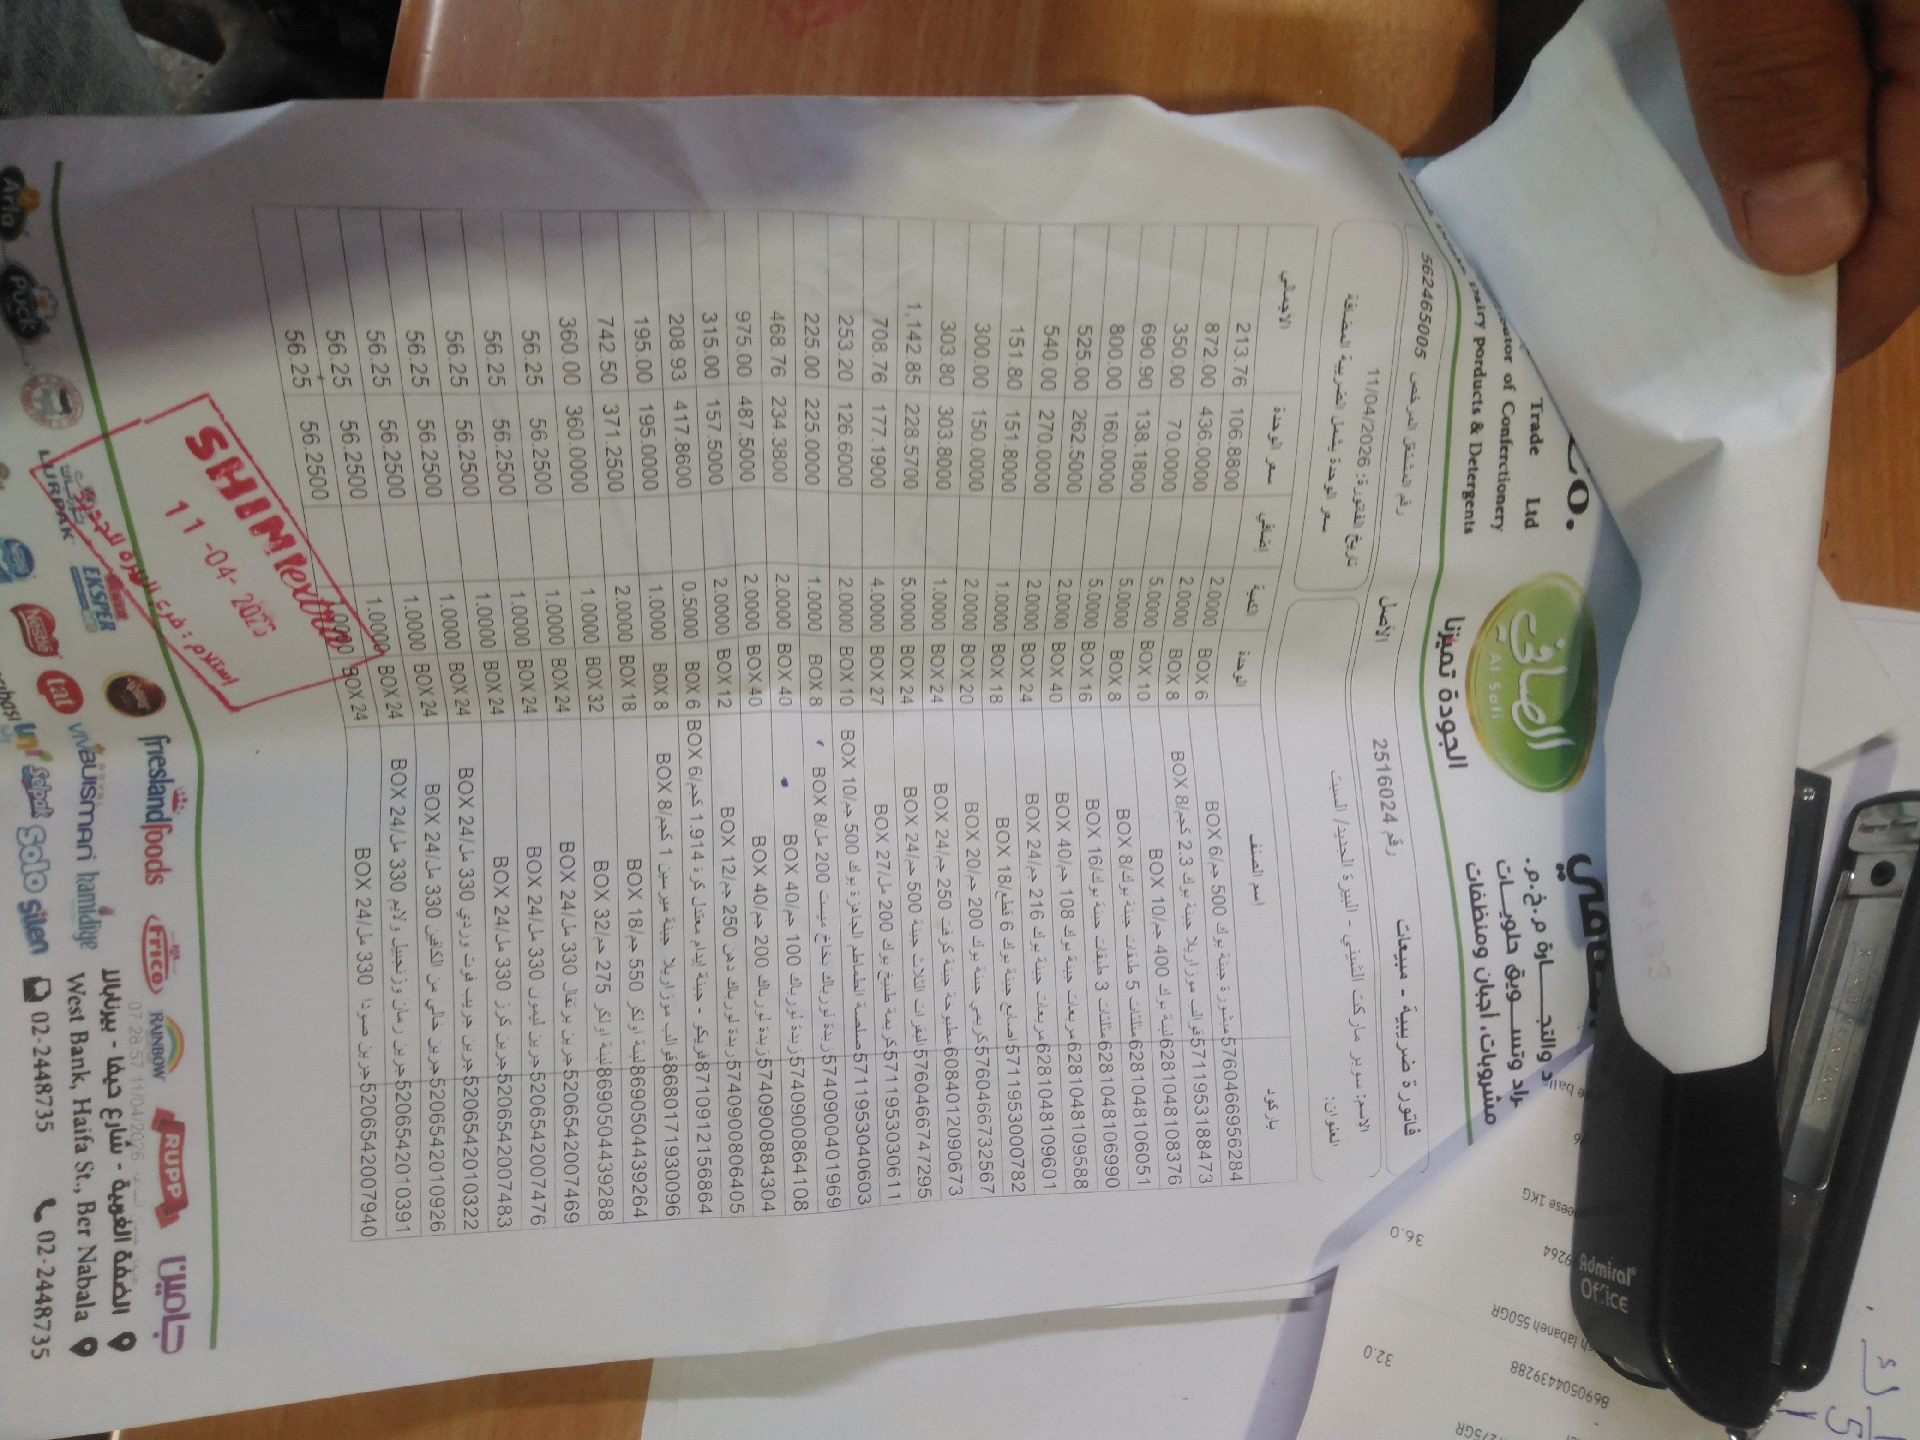 CO.
Trade Ltd
of Confectionery
Dairy Porducts & Detergents
الصافي
Al Safi
الجودة تميزنا
مشروبات، أجبان ومنظفات
فاتورة ضريبية - مبيعات رقم 2516024 الأصل رقم المشتغل المرخص 562465005
الاسم: سوبر ماركت الشيني - البيرة الجديد/ السبت تاريخ الفاتورة: 11/04/2026
العنوان: سعر الوحدة يشمل الضريبة المضافة
باركود إسم الصنف الوحدة الكمية إضافي سعر الوحدة الاجمالي
5760466956284 مبشورة جبنة بوك 500 جم/BOX 6 BOX 6 2.0000 106.8800 213.76
5711953188473 قوالب موزاريلا جبنة بوك 2.3 كجم/BOX 8 BOX 8 2.0000 436.0000 872.00
6281048108376 لبنة بوك 400 جم/BOX 10 BOX 10 5.0000 70.0000 350.00
6281048106051 مثلثات 5 طبقات جبنة بوك/BOX 8 BOX 8 5.0000 138.1800 690.90
6281048106990 مثلثات 3 طبقات جبنة بوك/BOX 16 BOX 16 5.0000 160.0000 800.00
6281048109588 مربعات جبنة بوك 108 جم/BOX 40 BOX 40 2.0000 262.5000 525.00
6281048109601 مربعات جبنة بوك 216 جم/BOX 24 BOX 24 2.0000 270.0000 540.00
5711953000782 اصابع جبنة بوك 6 قطع/BOX 18 BOX 18 1.0000 151.8000 151.80
5760466732567 كريمي جبنة بوك 200 جم/BOX 20 BOX 20 2.0000 150.0000 300.00
6084012090673 مطبوخة جبنة كرفت 250 جم/BOX 24 BOX 24 1.0000 303.8000 303.80
5760466747295 البقرات الثلاث جبنة 500 جم/BOX 24 BOX 24 5.0000 228.5700 1,142.85
5711953030611 كريمة طبيخ بوك 200 مل/BOX 27 BOX 27 4.0000 177.1900 708.76
5711953040603 صلصة الطماطم الجاهزة بوك 500 جم/BOX 10 BOX 10 2.0000 126.6000 253.20
5740900401969 زبدة لورباك بخاخ ميست 200 مل/BOX 8 BOX 8 1.0000 225.0000 225.00
5740900864108 زبدة لورباك 100 جم/BOX 40 BOX 40 2.0000 234.3800 468.76
5740900884304 زبدة لورباك 200 جم/BOX 40 BOX 40 2.0000 487.5000 975.00
5740900806405 زبدة لورباك دهن 250 جم/BOX 12 BOX 12 2.0000 157.5000 315.00
8710912156864 فريكو - جبنة إيدام معتدل كرة 1.914 كجم/BOX 6 BOX 6 0.5000 417.8600 208.93
8680171930096 قوالب موزاريلا جبنة ميرسين 1 كجم/BOX 8 BOX 8 1.0000 195.0000 195.00
8690504439264 لبنة اولكر 550 جم/BOX 18 BOX 18 2.0000 371.2500 742.50
8690504439288 لبنة اولكر 275 جم/BOX 32 BOX 32 1.0000 360.0000 360.00
5206542007469 جرين برتقال 330 مل/BOX 24 BOX 24 1.0000 56.2500 56.25
5206542007476 جرين ليمون 330 مل/BOX 24 BOX 24 1.0000 56.2500 56.25
5206542007483 جرين كرز 330 مل/BOX 24 BOX 24 1.0000 56.2500 56.25
5206542010322 جرين جريب فوت وردي 330 مل/BOX 24 BOX 24 1.0000 56.2500 56.25
5206542010926 جرين خالي من الكافين 330 مل/BOX 24 BOX 24 1.0000 56.2500 56.25
5206542010391 جرين رمان وزنجبيل ولايم 330 مل/BOX 24 BOX 24 1.0000 56.2500 56.25
5206542007940 جرين صودا 330 مل/BOX 24 BOX 24 1.0000 56.2500 56.25
11-04-2026
07:28:57 11/04/2026
frieslandfoods Frico RAINBOW RUPP
Arla Puck LURPAK EKSPER Nestle tat VIVA BUISMAN hamidiye
Solo silen
الضفة الغربية - شارع حيفا - بيرنبالا
West Bank, Haifa St., Ber Nabala
02-2448735 02-2448735
Admiral
Office
36.0
32.0
labaneh 550GR
8690504439288